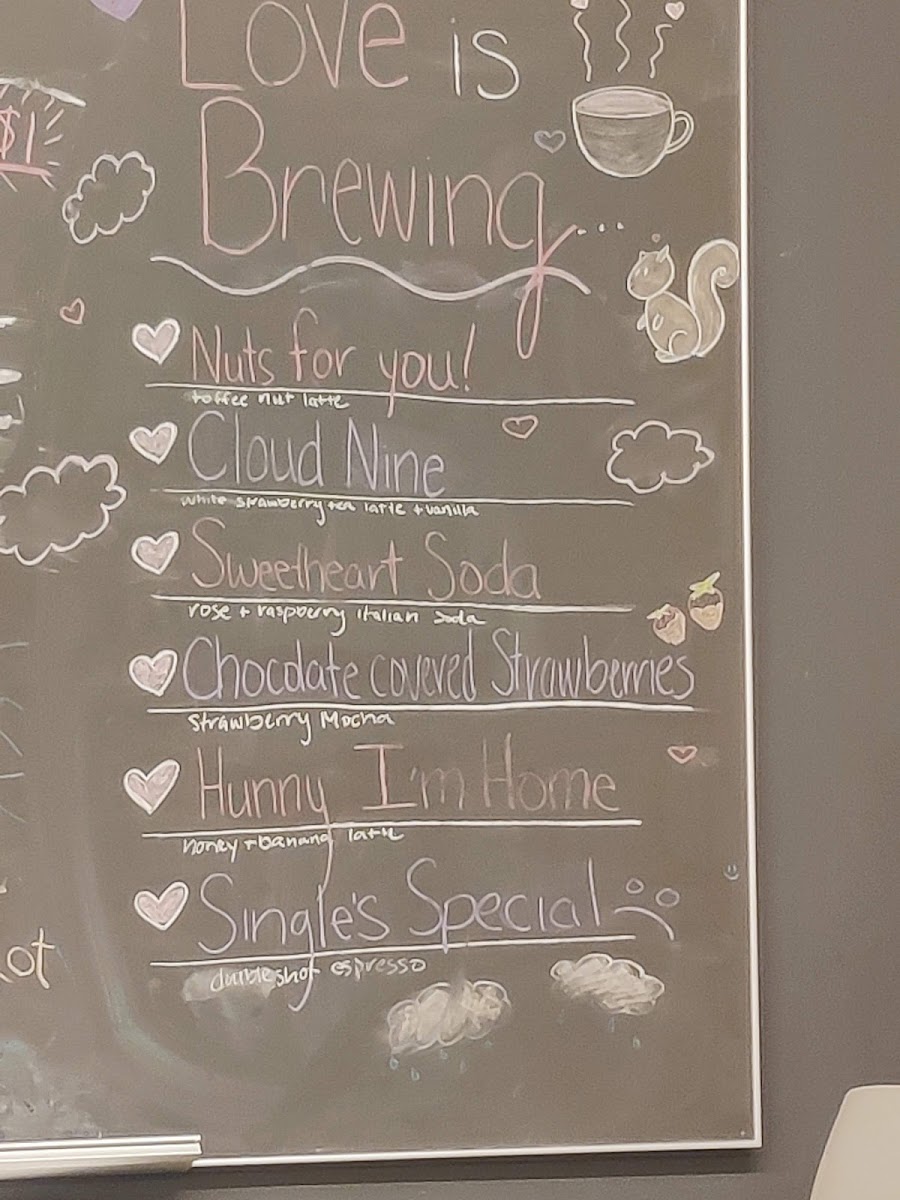 Love is
Brewing...
$1
Nuts for you!
toffee nut latte
Cloud Nine
white strawberry tea latte + vanilla
Sweetheart Soda
rose + raspberry italian soda
Chocolate covered Strawberries
Strawberry Mocha
Hunny I'm Home
honey + banana latte
Single's Special
double shot espresso
ot